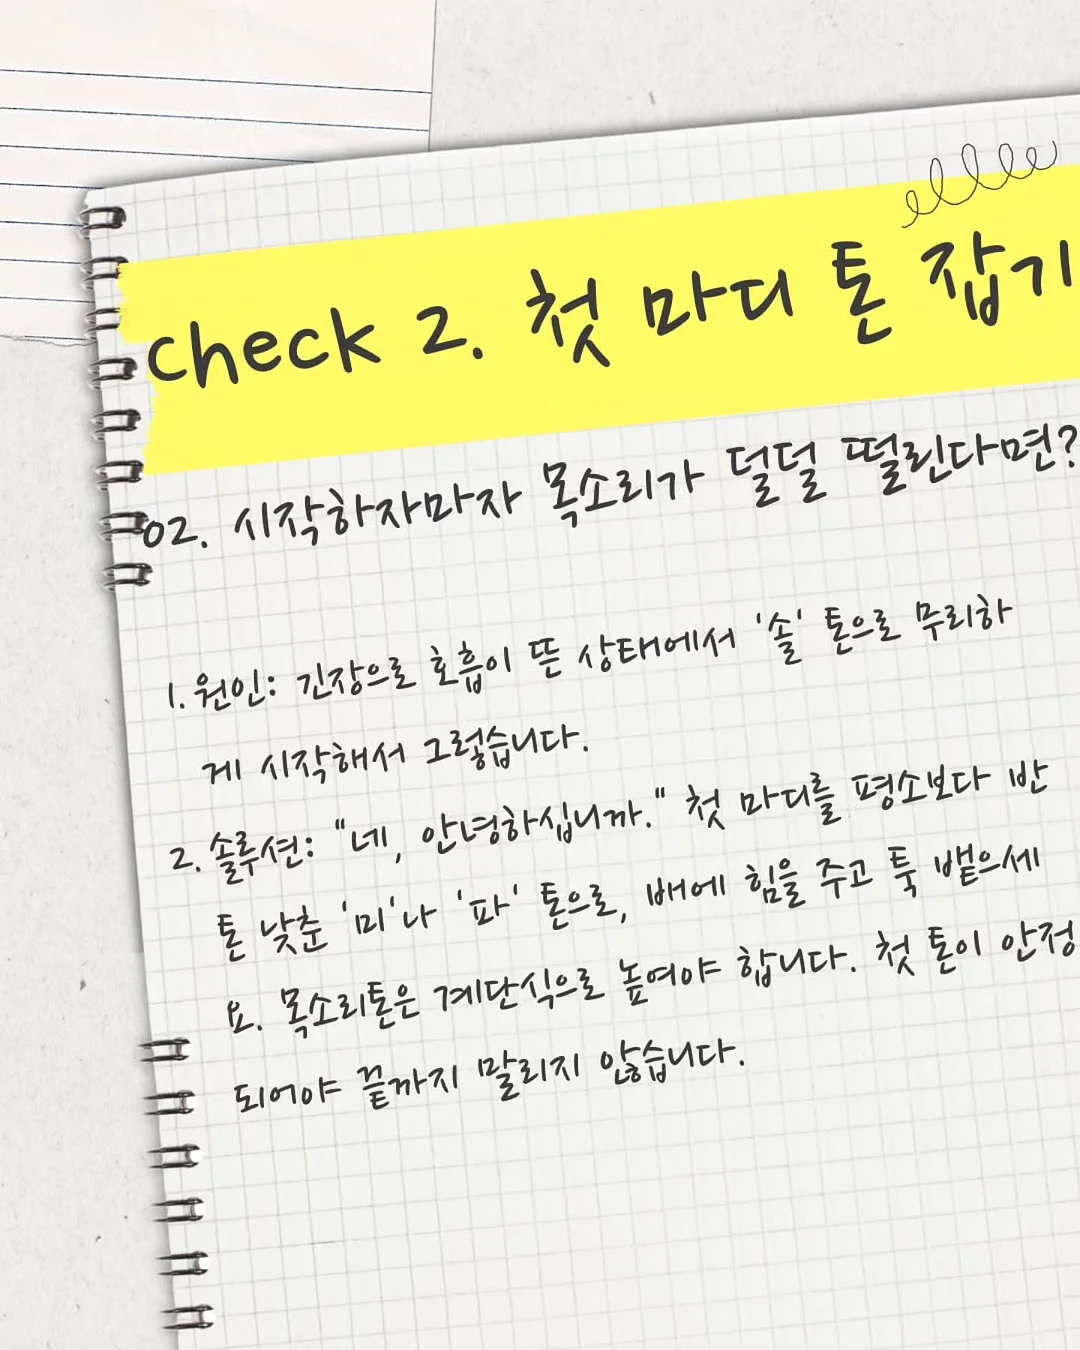 Check 2. 첫 마디 톤 잡기
02. 시작하자마자 목소리가 덜덜 떨린다면?
1. 원인: 긴장으로 호흡이 뜬 상태에서 '솔' 톤으로 무리하
게 시작해서 그렇습니다.
2. 솔루션: "네, 안녕하십니까." 첫 마디를 평소보다 반
톤 낮춘 '미'나 '파' 톤으로, 배에 힘을 주고 툭 뱉으세
요. 목소리톤은 계단식으로 높여야 합니다. 첫 톤이 안정
되어야 끝까지 말리지 않습니다.